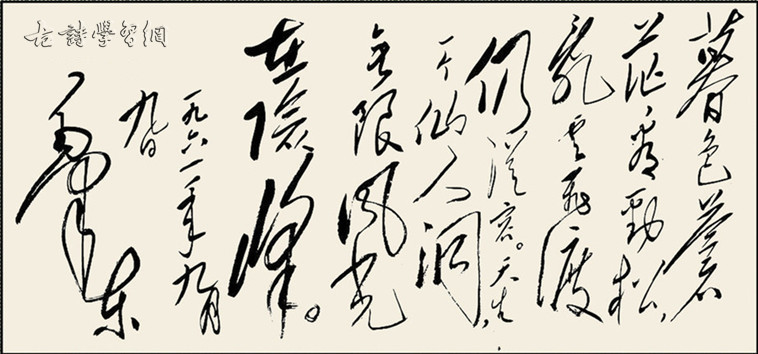 古詩學習網
暮色蒼
茫看勁松,
亂云飛渡
仍從容。天生
一个仙人洞
无限風光
在險峰。
一九六一年九月
九日
毛澤東